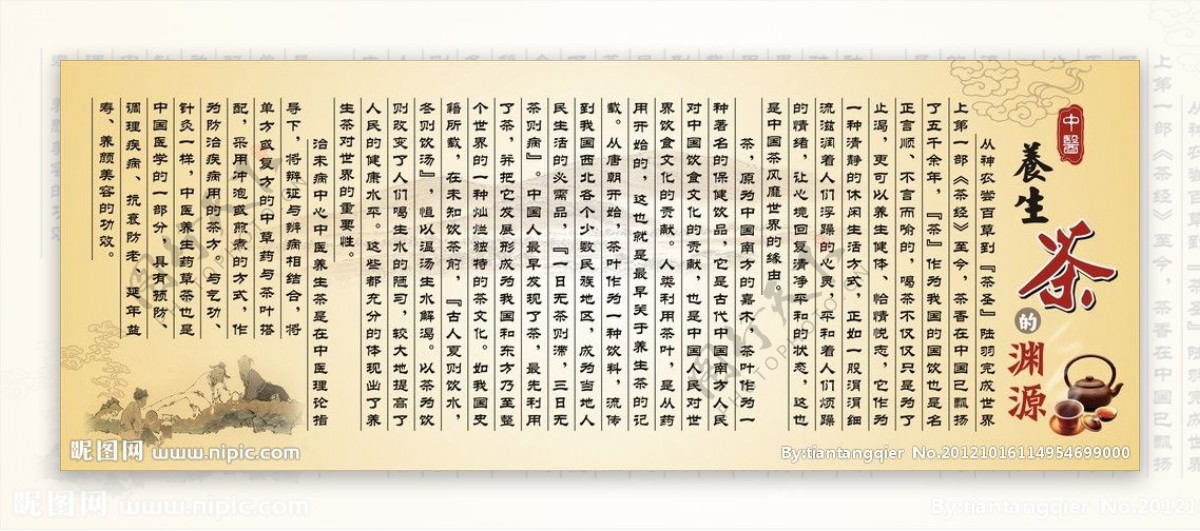 中醫
養生
茶
的
渊源
从神农尝百草到『茶圣』陆羽完成世界
上第一部《茶经》至今，茶香在中国已飘扬
了五千余年，『茶』作为我国的国饮也是名
正言顺、不言而喻的，喝茶不仅仅只是为了
止渴，更可以养生健体、怡情悦志，它作为
一种清静的休闲生活方式，正如一股涓涓细
流滋润着人们浮躁的心灵，平和着人们烦躁
的情绪，让心境回复清净平和的状态，这也
是中国茶风靡世界的缘由。
茶，原为中国南方的嘉木，茶叶作为一
种著名的保健饮品，它是古代中国南方人民
对中国饮食文化的贡献，也是中国人民对世
界饮食文化的贡献。人类利用茶叶，是从药
用开始的，这也就是最早关于养生茶的记
载。从唐朝开始，茶叶作为一种饮料，流传
到我国西北各个少数民族地区，成为当地人
民生活的必需品，『一日无茶则滞，三日无
茶则病』。中国人最早发现了茶，最先利用
了茶，并把它发展形成为我国和东方乃至整
个世界的一种灿烂独特的茶文化。如我国史
籍所载，在未知饮茶前，『古人夏则饮水，
冬则饮汤』，恒以温汤生水解渴。以茶为饮
则改变了人们喝生水的陋习，较大地提高了
人民的健康水平。这些都充分的体现出了养
生茶对世界的重要性。
治未病中心中医养生茶是在中医理论指
导下，将辩证与辨病相结合，将
单方或复方的中草药与茶叶搭
配，采用冲泡或煎煮的方式，作
为防治疾病用的茶方，与艺功、
针灸一样，中医养生药草茶也是
中国医学的一部分，具有预防
调理疾病、抗衰防老、延年益
寿、养颜美容的功效。
昵图网 www.nipic.com
By:tiantangqier No.20121016114954699000
昵图网 www.nipic.com
By:tiantangqier No.20121